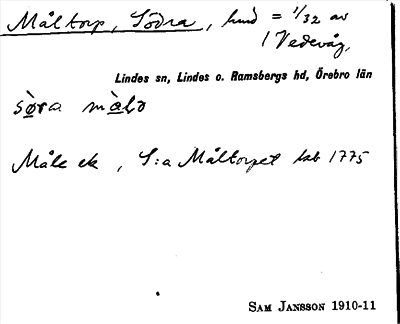 Måltorp, Södra, hmd = 1/32 av
1 Vedevåg,
Lindes sn, Lindes o. Ramsbergs hd, Örebro län
Måle ek, S:a Måltorpet 1775
Sam Jansson 1910-11